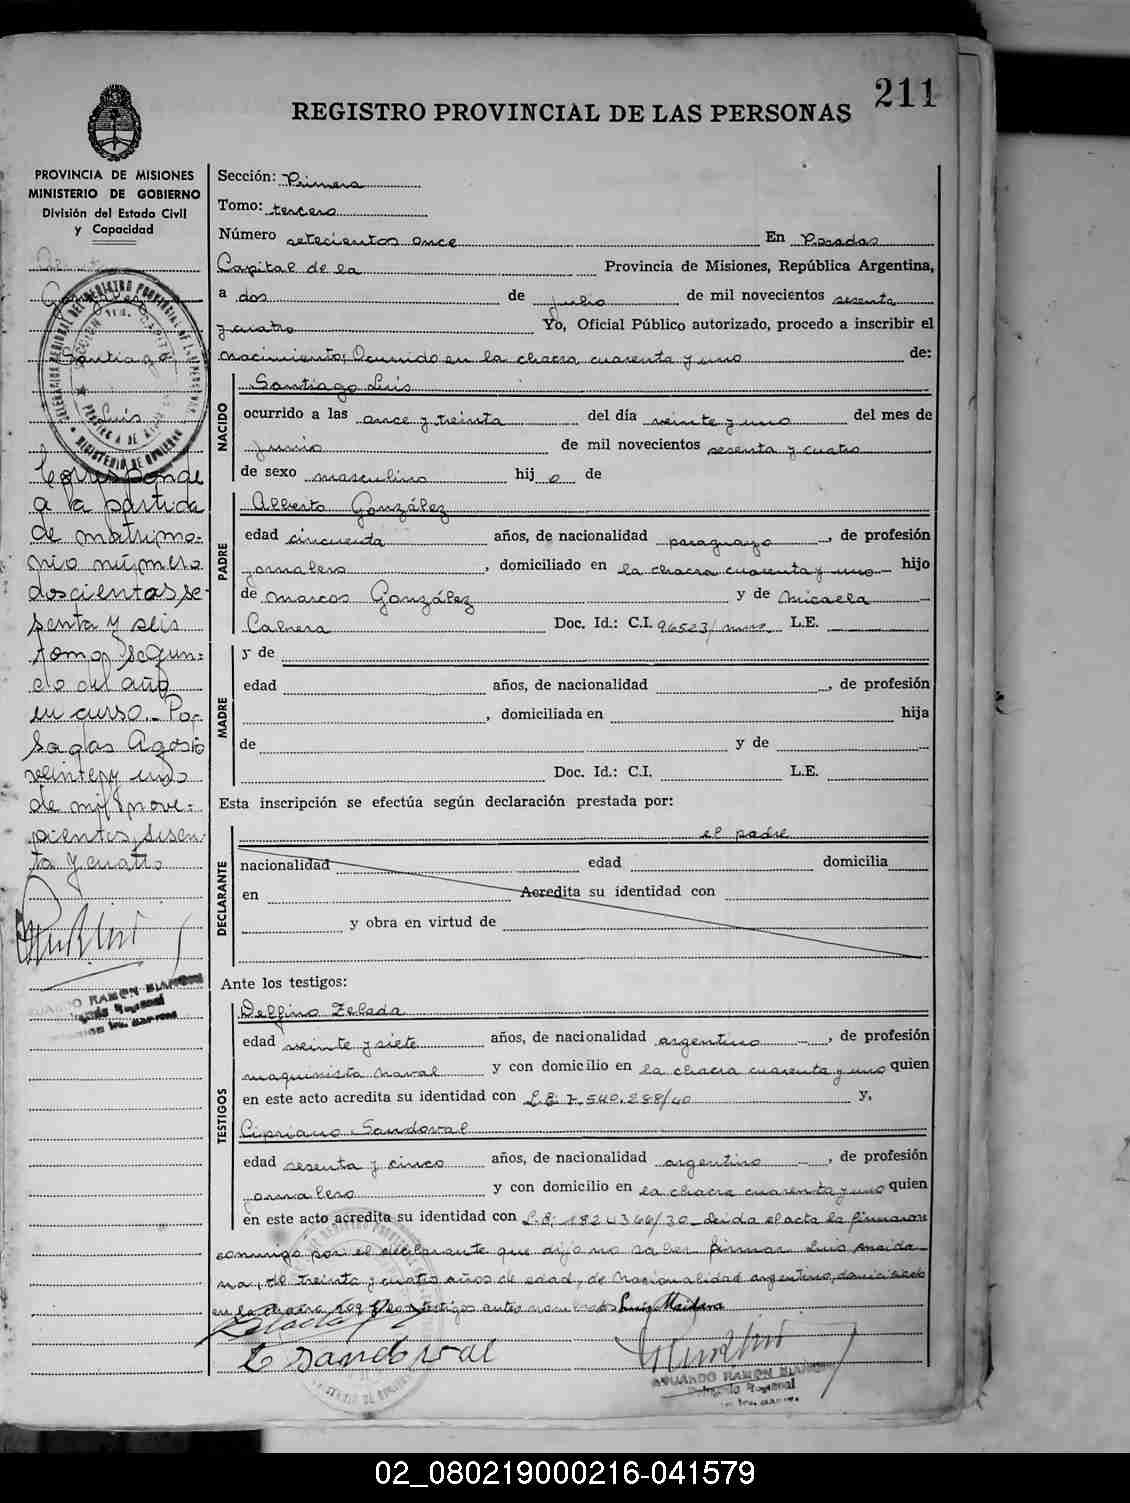 211
REGISTRO PROVINCIAL DE LAS PERSONAS
PROVINCIA DE MISIONES
MINISTERIO DE GOBIERNO
División del Estado Civil
y Capacidad
Santiago
Luis
Corresponde
a la partida
de matrimo-
nio número
doscientas se-
senta y seis
tomo segun-
do del año
en curso._ Po-
sadas Agosto
veinte y uno
de mil nove-
cientos sesen-
ta y cuatro
Sección: Primera
Tomo: tercero
Número setecientos once En Posadas
Capital de la Provincia de Misiones, República Argentina,
a dos de julio de mil novecientos sesenta
y cuatro Yo, Oficial Público autorizado, procedo a inscribir el
nacimiento, Ocurrido en la chacra cuarenta y uno de:
NACIDO
Santiago Luis
ocurrido a las once y treinta del día veinte y uno del mes de
junio de mil novecientos sesenta y cuatro
de sexo masculino hij o de
PADRE
Alberto González
edad cincuenta años, de nacionalidad paraguayo, de profesión
jornalero, domiciliado en la chacra cuarenta y uno hijo
de Marcos González y de Micaela
Cabrera Doc. Id.: C.I. 96523/ L.E.
MADRE
y de
edad años, de nacionalidad , de profesión
, domiciliada en hija
de y de
Doc. Id.: C.I. L.E.
Esta inscripción se efectúa según declaración prestada por:
DECLARANTE
el padre
nacionalidad edad domicilia
en Acredita su identidad con
y obra en virtud de
Ante los testigos:
TESTIGOS
Delfino Zelada
edad veinte y siete años, de nacionalidad argentino, de profesión
maquinista naval y con domicilio en la chacra cuarenta y uno quien
en este acto acredita su identidad con L.E. 7.540.288/40 y,
Cipriano Sandoval
edad sesenta y cinco años, de nacionalidad argentino, de profesión
jornalero y con domicilio en la chacra cuarenta y uno quien
en este acto acredita su identidad con L.E. Leida el acta la firmaron
conmigo por el declarante que dijo no saber firmar Luis Maida-
na, de treinta y cuatro años de edad, de nacionalidad argentino, domiciliado
en la chacra 109 y los testigos antes nombrados Luis Maidana
C Sandoval
EDUARDO RAMON
Delegado Regional
02_080219000216-041579